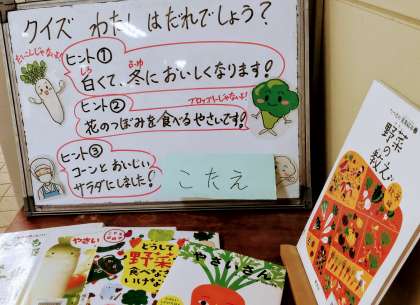 クイズ わたしはだれでしょう?
だいこんじゃないよ!
ヒント①
白くて、冬においしくなります!
しろ
ふゆ
ヒント②
ブロッコリーじゃないよ!
花のつぼみを食べるやさいです!
ヒント③
コーンとおいしい
サラダにしました!
こたえ
野菜の教え
やさい
どうして
野菜を
食べなきゃ
いけないの
やさいさん